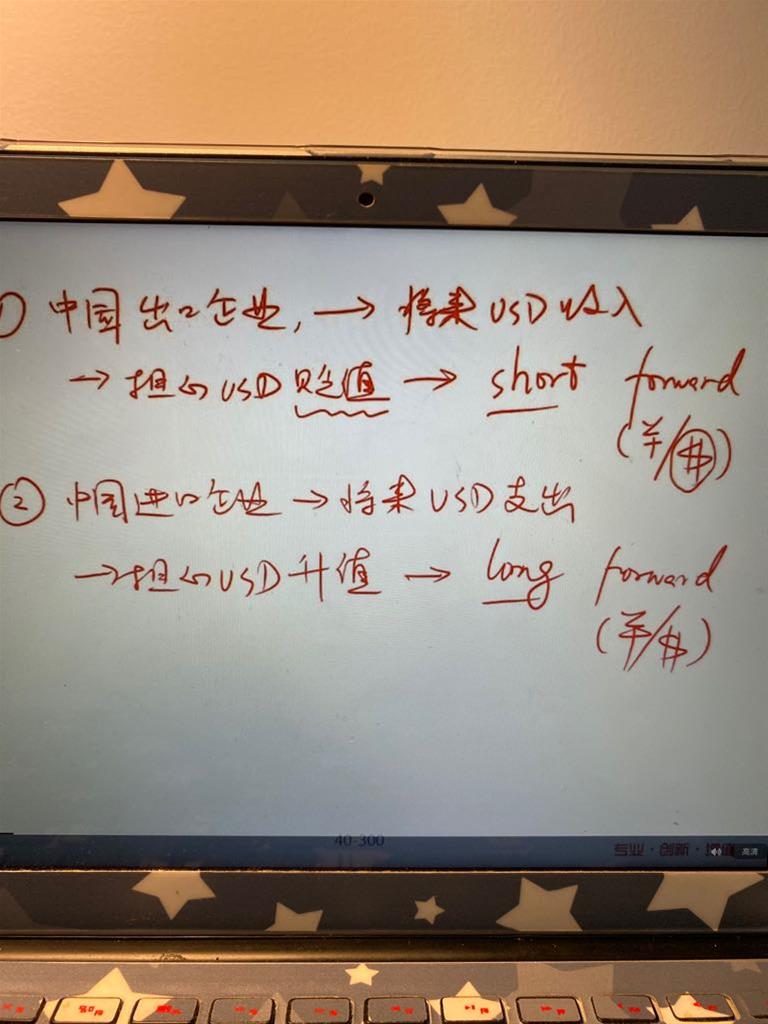 ① 中国出口企业, → 将来USD收入
→ 担心USD贬值 → short forward
(¥/$)
② 中国进口企业 → 将来USD支出
→ 担心USD升值 → long forward
(¥/$)
40-300
专业·创新·增值
高清